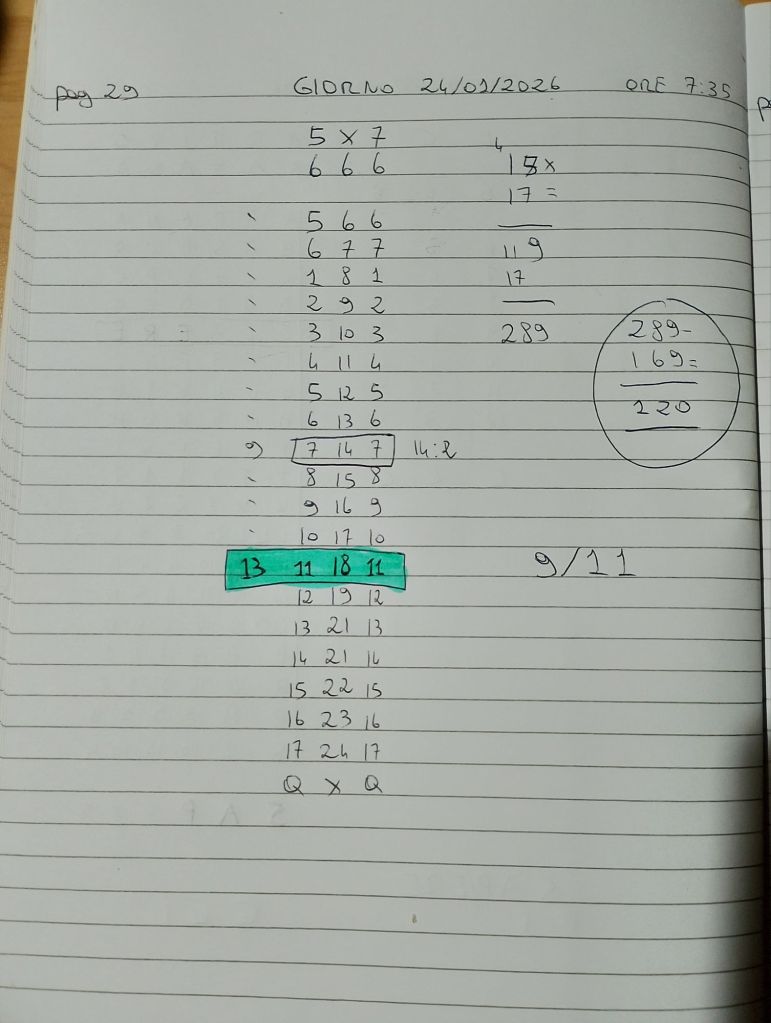 pag 29 GIORNO 24/01/2026 ORE 7:35
5 x 7
6 6 6
4
18x
17 =
5 6 6
6 7 7
119
1 8 1
17
2 9 2
3 10 3
289
289-
169=
120
4 11 4
5 12 5
6 13 6
9 7 14 7 14:2
8 15 8
9 16 9
10 17 10
13 11 18 11
9/11
12 19 12
13 21 13
14 21 14
15 22 15
16 23 16
17 24 17
Q x Q